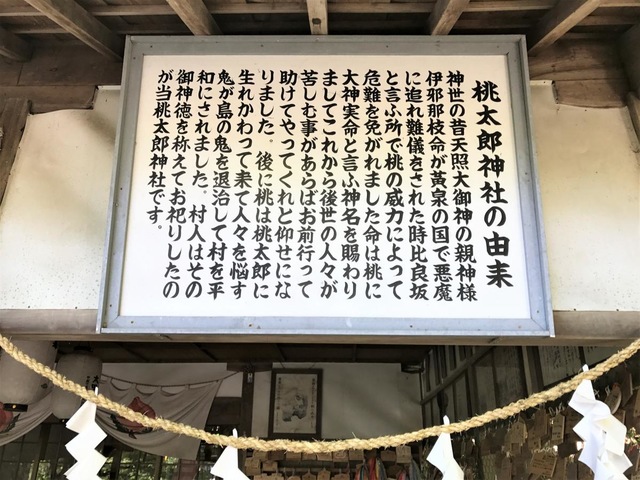 桃太郎神社の由来
神世の昔天照大御神の親神様
伊邪那枝命が黃泉の国で悪魔
に追れ難儀をされた時比良坂
と言ふ所で桃の威力によって
危難を免がれました命は桃に
大神実命と言ふ神名を賜わり
ましてこれから後世の人々が
苦しむ事があらばお前行って
助けてやってくれと仰せにな
りました。後に桃は桃太郎に
生れかわって来て人々を悩す
鬼が島の鬼を退治して村を平
和にされました。村人はその
御神徳を称えてお祀りしたの
が当桃太郎神社です。